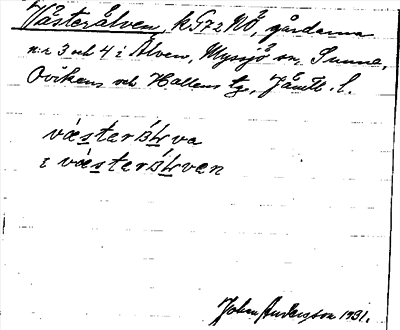 Västerålven, k 572 NÖ, gårdarna
n:r 3 och 4 i Ålven, Myssjö sn, Sunne,
Ovikens och Hallens tg, Jämtl. l.
væsterålva
i væsterålven
John Andersson 1931.